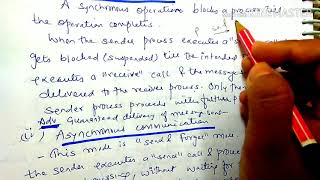 A synchronous operation blocks a process till
the operation completes.
When the sender process executes a "s
gets blocked (suspended) till the intended
executes a "receive" call & the message
delivered to the receiver process. Only then
Sender process proceeds with further
Adv Guaranteed delivery of message sent
(ii) Asynchronous communication
- This mode is a "send & forget" mode.
the sender executes a "send" call & proceeds
without waiting for